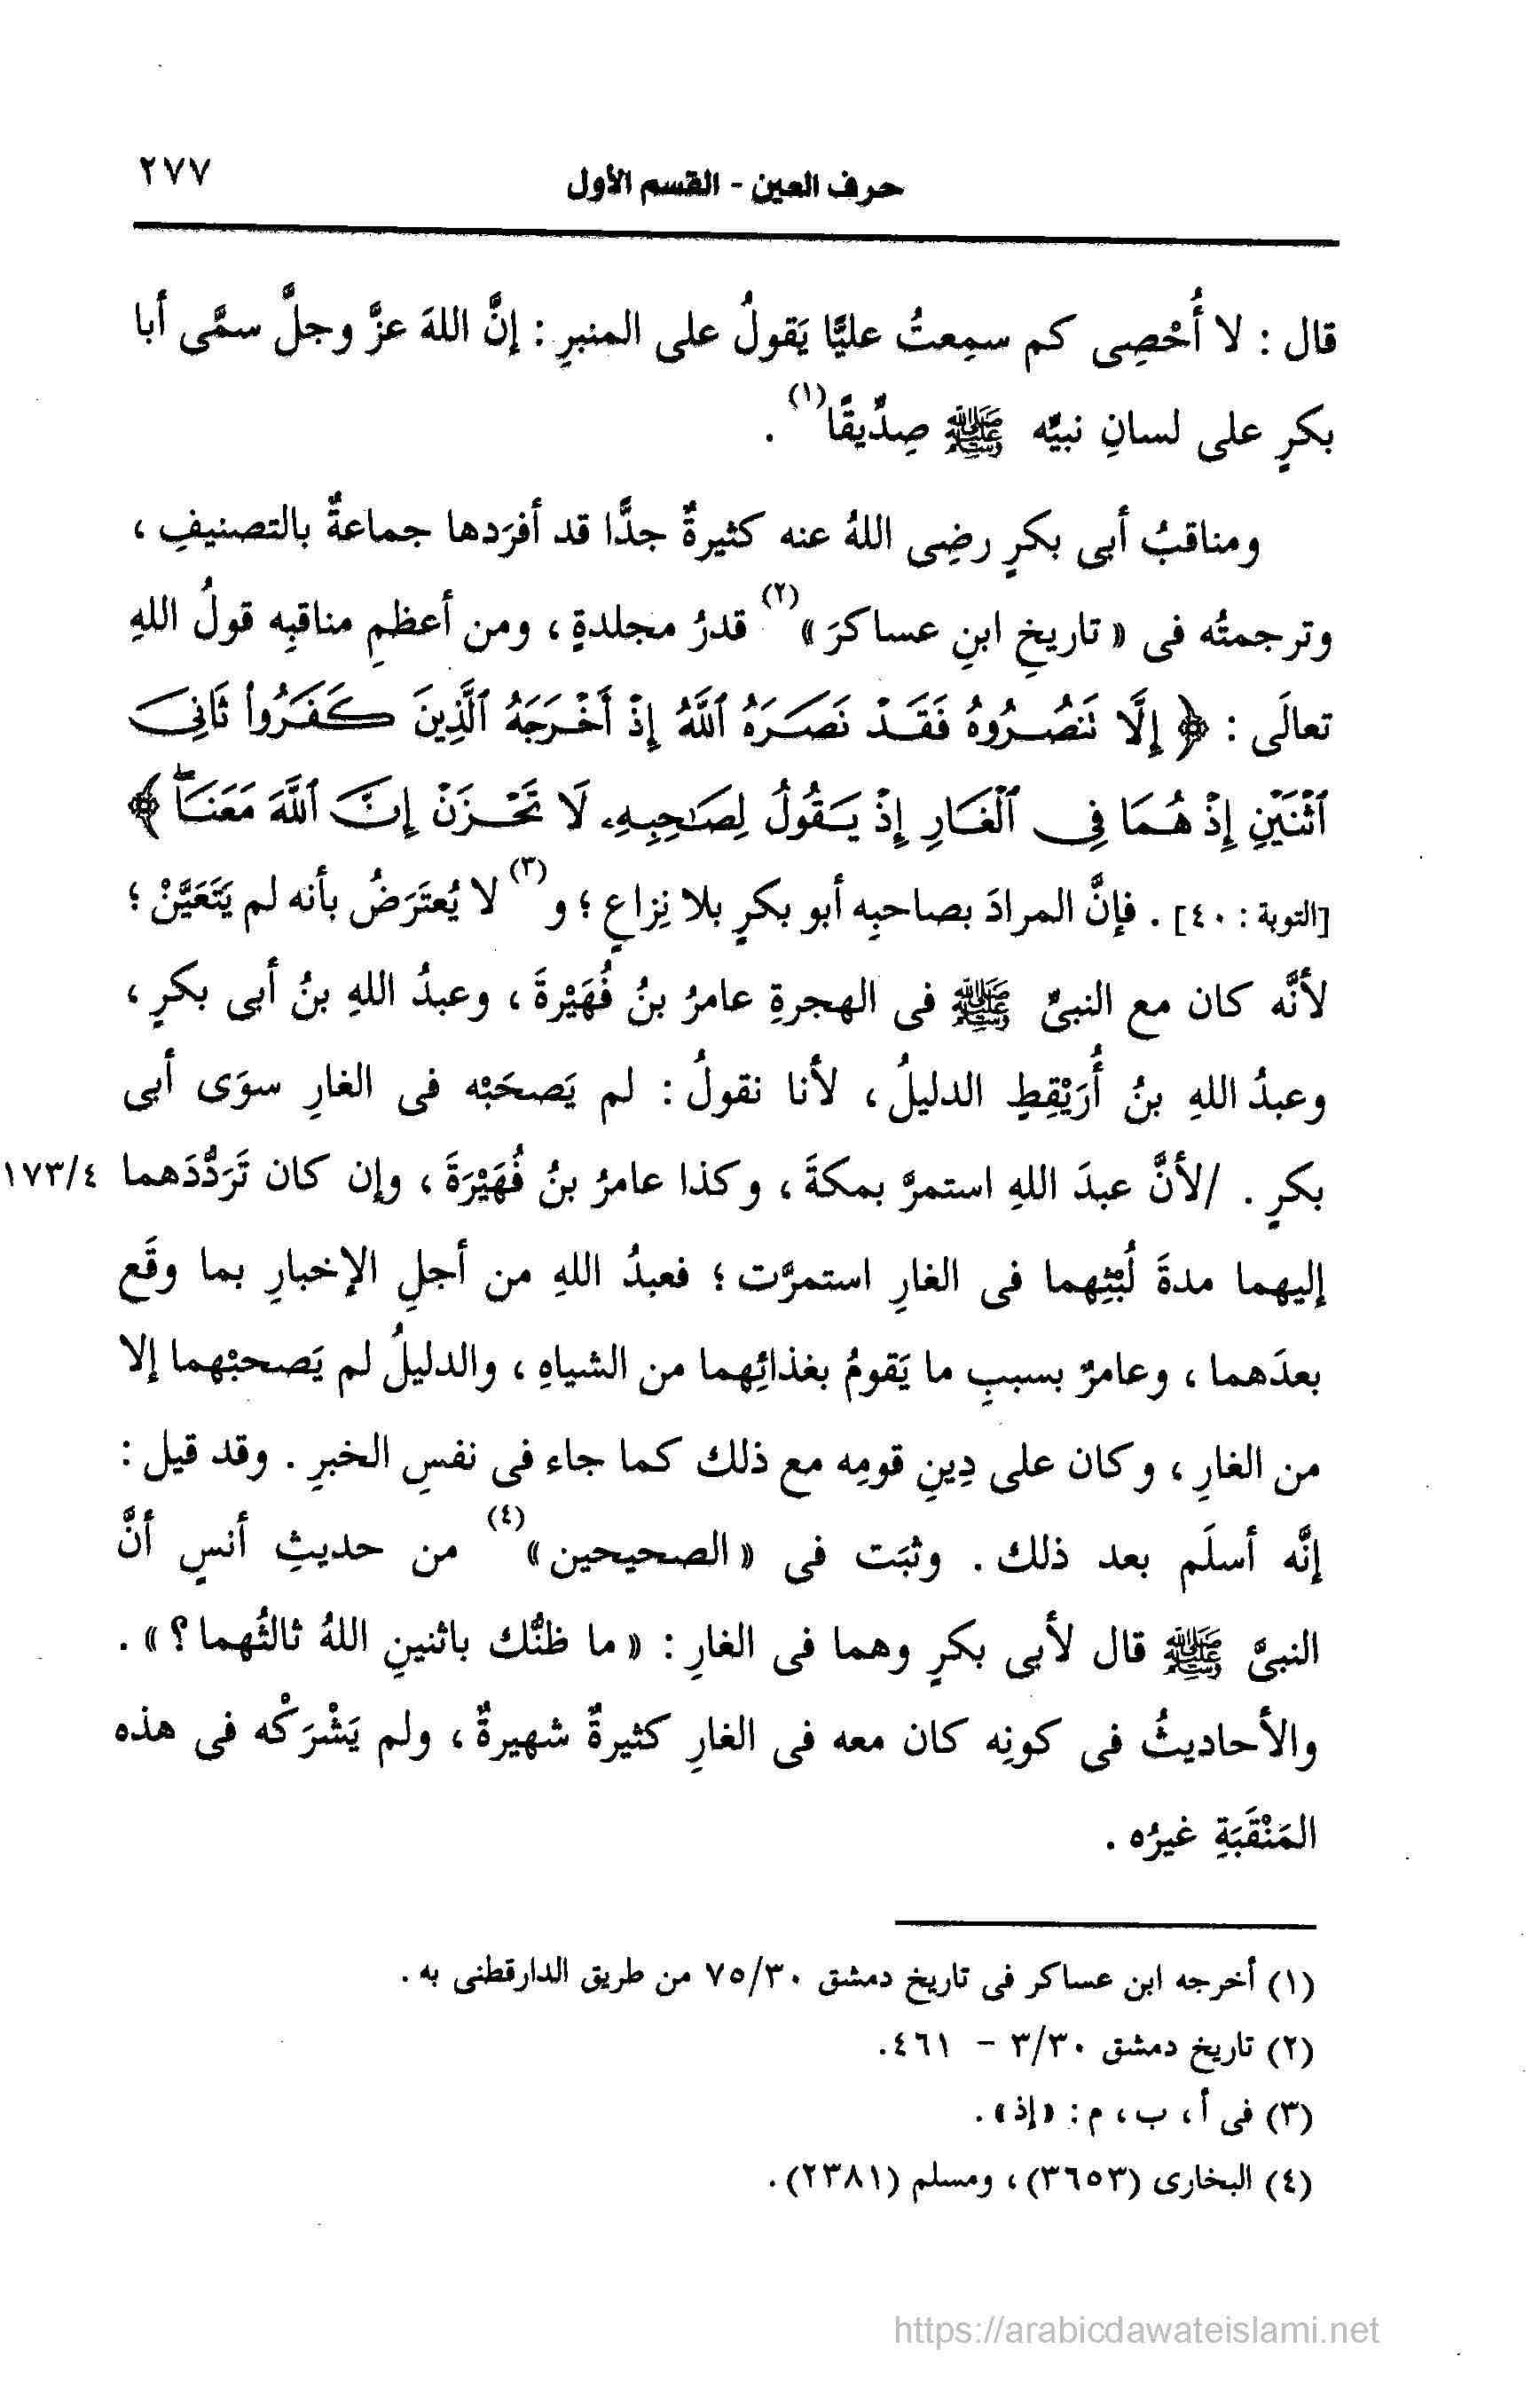 حرف العين - القسم الأول ٢٧٧
قال : لا أُحْصِى كم سمِعتُ عليًّا يَقولُ على المنبرِ : إنَّ اللهَ عزَّ وجلَّ سمَّى أبا
بكرٍ على لسانِ نبيِّه ﷺ صِدِّيقًا(١) .
ومناقبُ أبى بكرٍ رضِى اللهُ عنه كثيرةٌ جدًّا قد أفرَدها جماعةٌ بالتصنيفِ ،
وترجمتُه فى « تاريخِ ابنِ عساكرَ »(٢) قدرُ مجلدةٍ ، ومن أعظمِ مناقبِه قولُ اللهِ
تعالَى : ﴿ إِلَّا تَنصُرُوهُ فَقَدْ نَصَرَهُ ٱللَّهُ إِذْ أَخْرَجَهُ ٱلَّذِينَ كَفَرُوا۟ ثَانِىَ
ٱثْنَيْنِ إِذْ هُمَا فِى ٱلْغَارِ إِذْ يَقُولُ لِصَـٰحِبِهِۦ لَا تَحْزَنْ إِنَّ ٱللَّهَ مَعَنَاۖ ﴾
[التوبة : ٤٠] . فإنَّ المرادَ بصاحبِه أبو بكرٍ بلا نِزاعٍ ؛ و(٣) لا يُعتَرَضُ بأنه لم يَتَعَيَّنْ ؛
لأنَّه كان مع النبىِّ ﷺ فى الهجرةِ عامرُ بنُ فُهَيْرةَ ، وعبدُ اللهِ بنُ أبى بكرٍ ،
وعبدُ اللهِ بنُ أُرَيْقِطٍ الدليلُ ، لأنا نقولُ : لم يَصحَبْه فى الغارِ سوَى أبى
بكرٍ . /لأنَّ عبدَ اللهِ استمرَّ بمكةَ ، وكذا عامرُ بنُ فُهَيْرَةَ ، وإن كان تَرَدُّدَهما ١٧٣/٤
إليهما مدةَ لُبْثِهما فى الغارِ استمرَّت ؛ فعبدُ اللهِ من أجلِ الإخبارِ بما وقَع
بعدَهما ، وعامرٌ بسببِ ما يَقومُ بغذائِهما من الشياهِ ، والدليلُ لم يَصحبْهما إلا
من الغارِ ، وكان على دِينِ قومِه مع ذلك كما جاء فى نفسِ الخبرِ . وقد قيل :
إنَّه أسلَم بعد ذلك . وثبَت فى « الصحيحين »(٤) من حديثِ أنسٍ أنَّ
النبىَّ ﷺ قال لأبى بكرٍ وهما فى الغارِ : « ما ظنُّك باثنينِ اللهُ ثالثُهما ؟ » .
والأحاديثُ فى كونِه كان معه فى الغارِ كثيرةٌ شهيرةٌ ، ولم يَشْرَكْه فى هذه
المَنْقَبَةِ غيرُه .
(١) أخرجه ابن عساكر فى تاريخ دمشق ٧٥/٣٠ من طريق الدارقطنى به .
(٢) تاريخ دمشق ٣/٣٠ - ٤٦١.
(٣) فى أ ، ب ، م : «إذ» .
(٤) البخارى (٣٦٥٣) ، ومسلم (٢٣٨١) .
https://arabicdawateislami.net